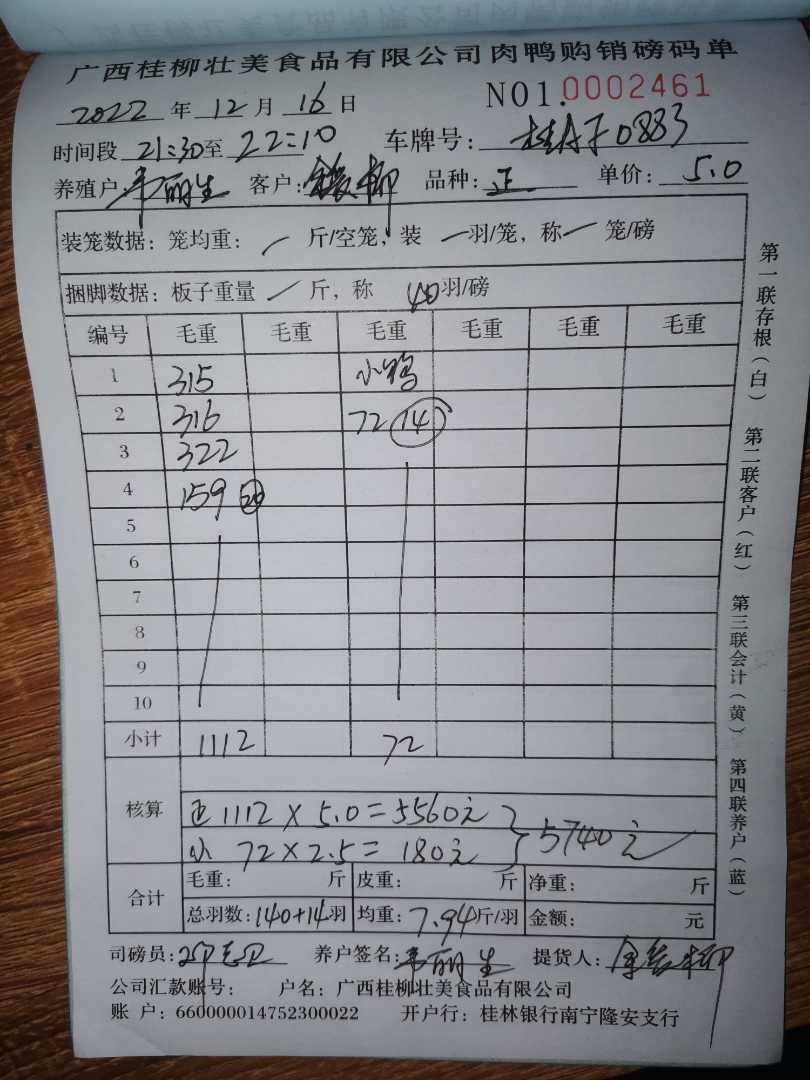 广西桂柳壮美食品有限公司肉鸭购销磅码单
2022 年 12 月 16 日 NO1.0002461
时间段 21:30至 22:10 车牌号: 0883
养殖户: 韦丽生 客户: 柳 品种: 正 单价: 5.0
装笼数据: 笼均重: / 斤/空笼, 装 一羽/笼, 称 一 笼/磅
捆脚数据: 板子重量 / 斤, 称 40羽/磅
编号 毛重 毛重 毛重 毛重 毛重 毛重
1 315 小鸭
2 316 72 14
3 322
4 159 20
5
6
7
8
9
10
小计 1112 72
核算
正 1112 × 5.0 = 5560元
小 72 × 2.5 = 180元 } 5740元
合计 毛重: 斤 皮重: 斤 净重: 斤
总羽数: 140+14羽 均重: 7.94斤/羽 金额: 元
司磅员: 养户签名: 韦丽生 提货人: 柳
公司汇款账号: 户名: 广西桂柳壮美食品有限公司
账 户: 660000014752300022 开户行: 桂林银行南宁隆安支行
第一联存根(白) 第二联客户(红) 第三联会计(黄) 第四联养户(蓝)